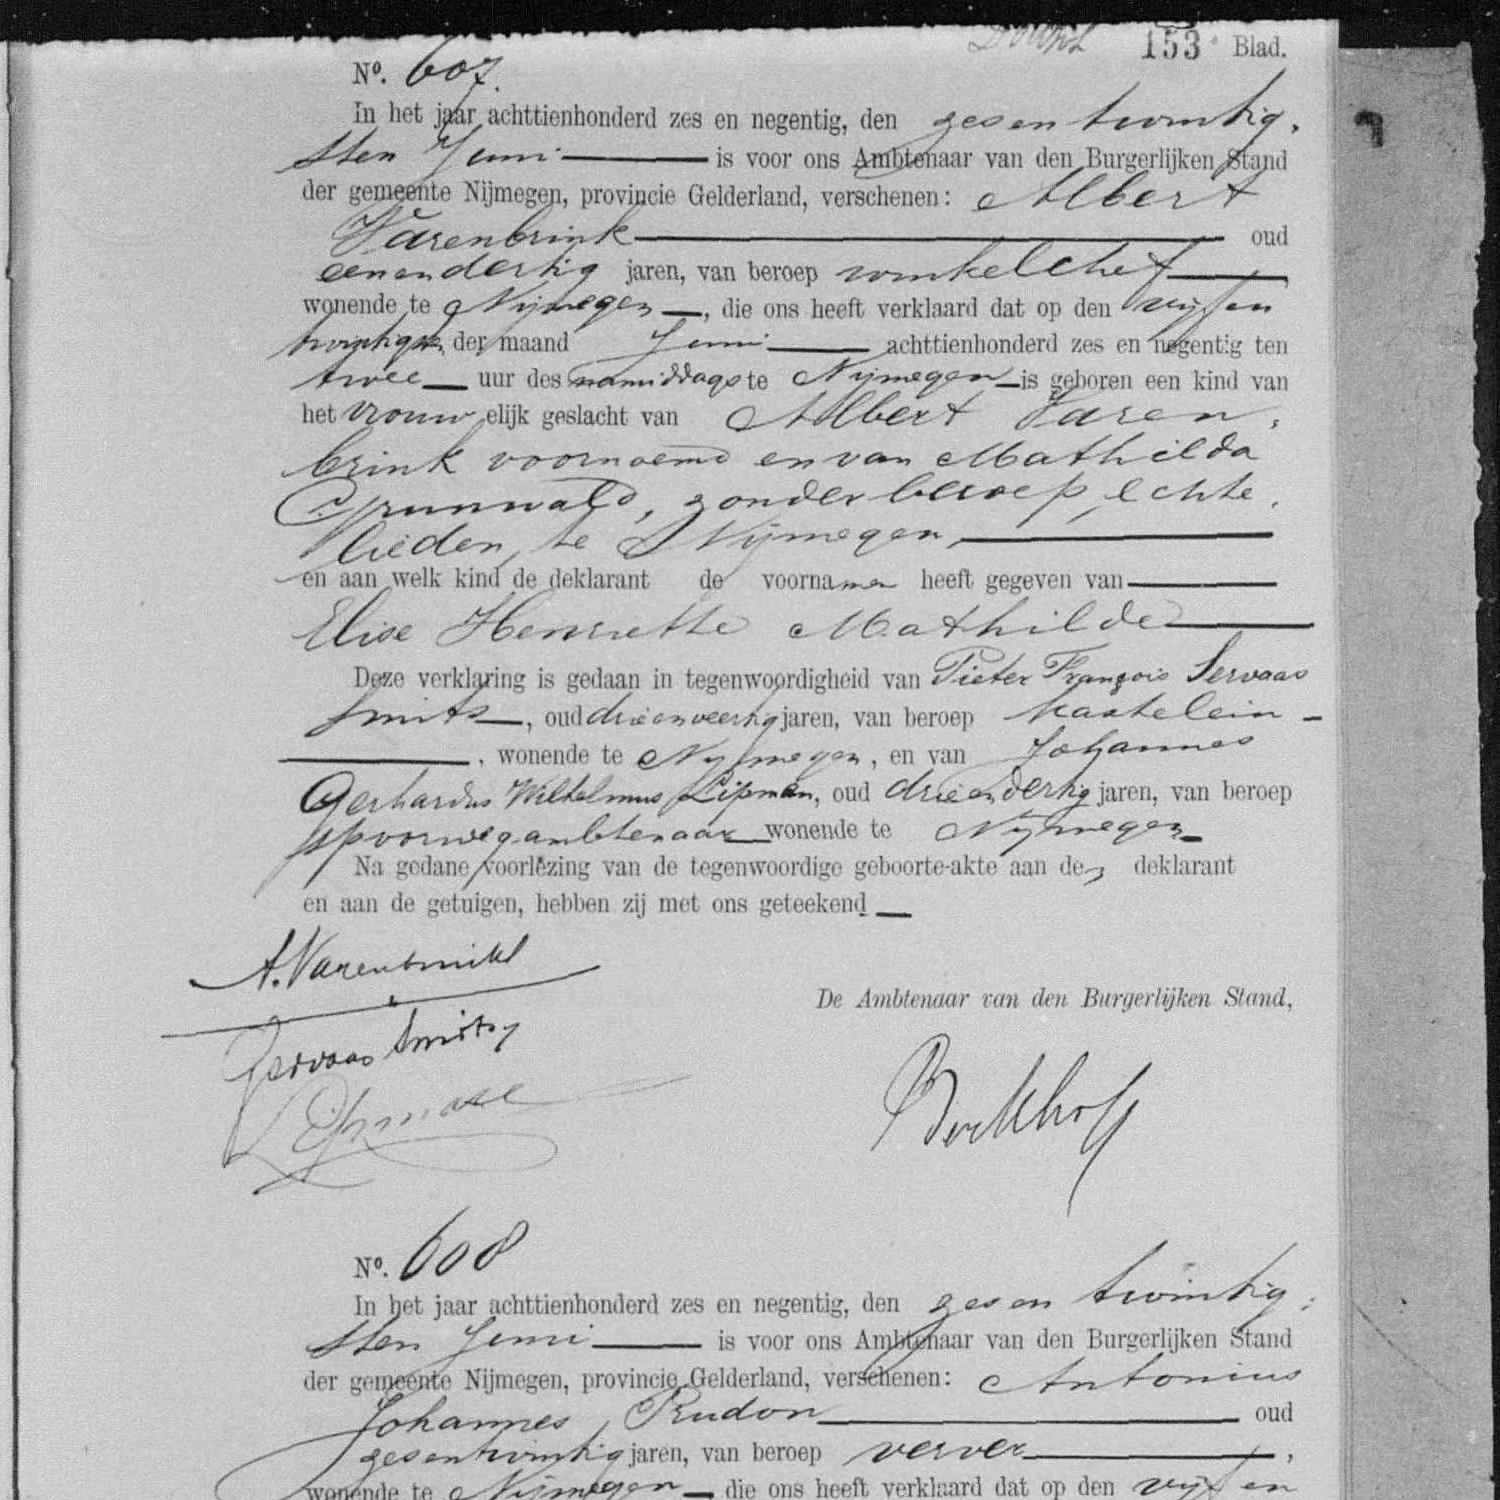 153 Blad.
No. 607.
In het jaar achttienhonderd zes en negentig, den zesentwintig-
sten Juni is voor ons Ambtenaar van den Burgerlijken Stand
der gemeente Nijmegen, provincie Gelderland, verschenen: Albert
Varenbrink oud
eenendertig jaren, van beroep winkelchef
wonende te Nijmegen, die ons heeft verklaard dat op den vijfen
twintigsten der maand Juni achttienhonderd zes en negentig ten
twee uur des namiddags te Nijmegen is geboren een kind van
het vrouwelijk geslacht van Albert Varen-
brink voornoemd en van Mathilda
Grunwald, zonder beroep, echte-
lieden, te Nijmegen,
en aan welk kind de deklarant de voornamen heeft gegeven van
Elise Henriette Mathilde
Deze verklaring is gedaan in tegenwoordigheid van Pieter François Servaas
Smits, oud drieenveertig jaren, van beroep kastelein
, wonende te Nijmegen, en van Johannes
Gerhardus Wilhelmus Lipman, oud drieendertig jaren, van beroep
spoorwegambtenaar wonende te Nijmegen
Na gedane voorlezing van de tegenwoordige geboorte-akte aan den deklarant
en aan de getuigen, hebben zij met ons geteekend
A. Varenbrink
De Ambtenaar van den Burgerlijken Stand,
Servaas Smits
Berkhoff
No. 608
In het jaar achttienhonderd zes en negentig, den zesentwintig-
sten Juni is voor ons Ambtenaar van den Burgerlijken Stand
der gemeente Nijmegen, provincie Gelderland, verschenen: Antonius
Johannes Rudon oud
zesentwintig jaren, van beroep verver,
wonende te Nijmegen die ons heeft verklaard dat op den vijfen